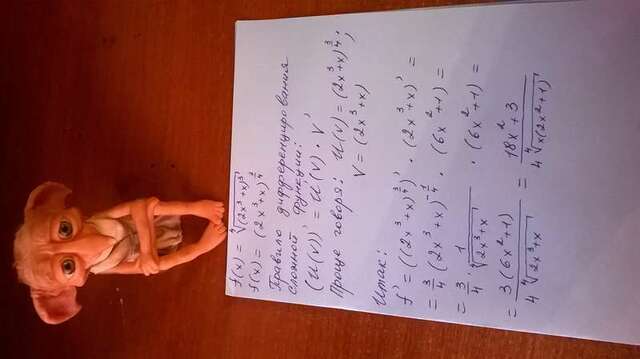 f(x) = ⁴√(2x³+x)³
f(x) = (2x³+x)^(3/4)
Правило дифференцирования
сложной функции:
(U(V))' = U'(V) · V'
Проще говоря: U(V) = (2x³+x)^(3/4);
V = (2x³+x)
Итак:
f' = ((2x³+x)^(3/4))' · (2x³+x)' =
= 3/4 (2x³+x)^(-1/4) · (6x²+1) =
= 3/4 · 1/⁴√(2x³+x) · (6x²+1) =
= 3(6x²+1)/(4 ⁴√(2x³+x)) = (18x²+3)/(4 ⁴√(x(2x²+1)))